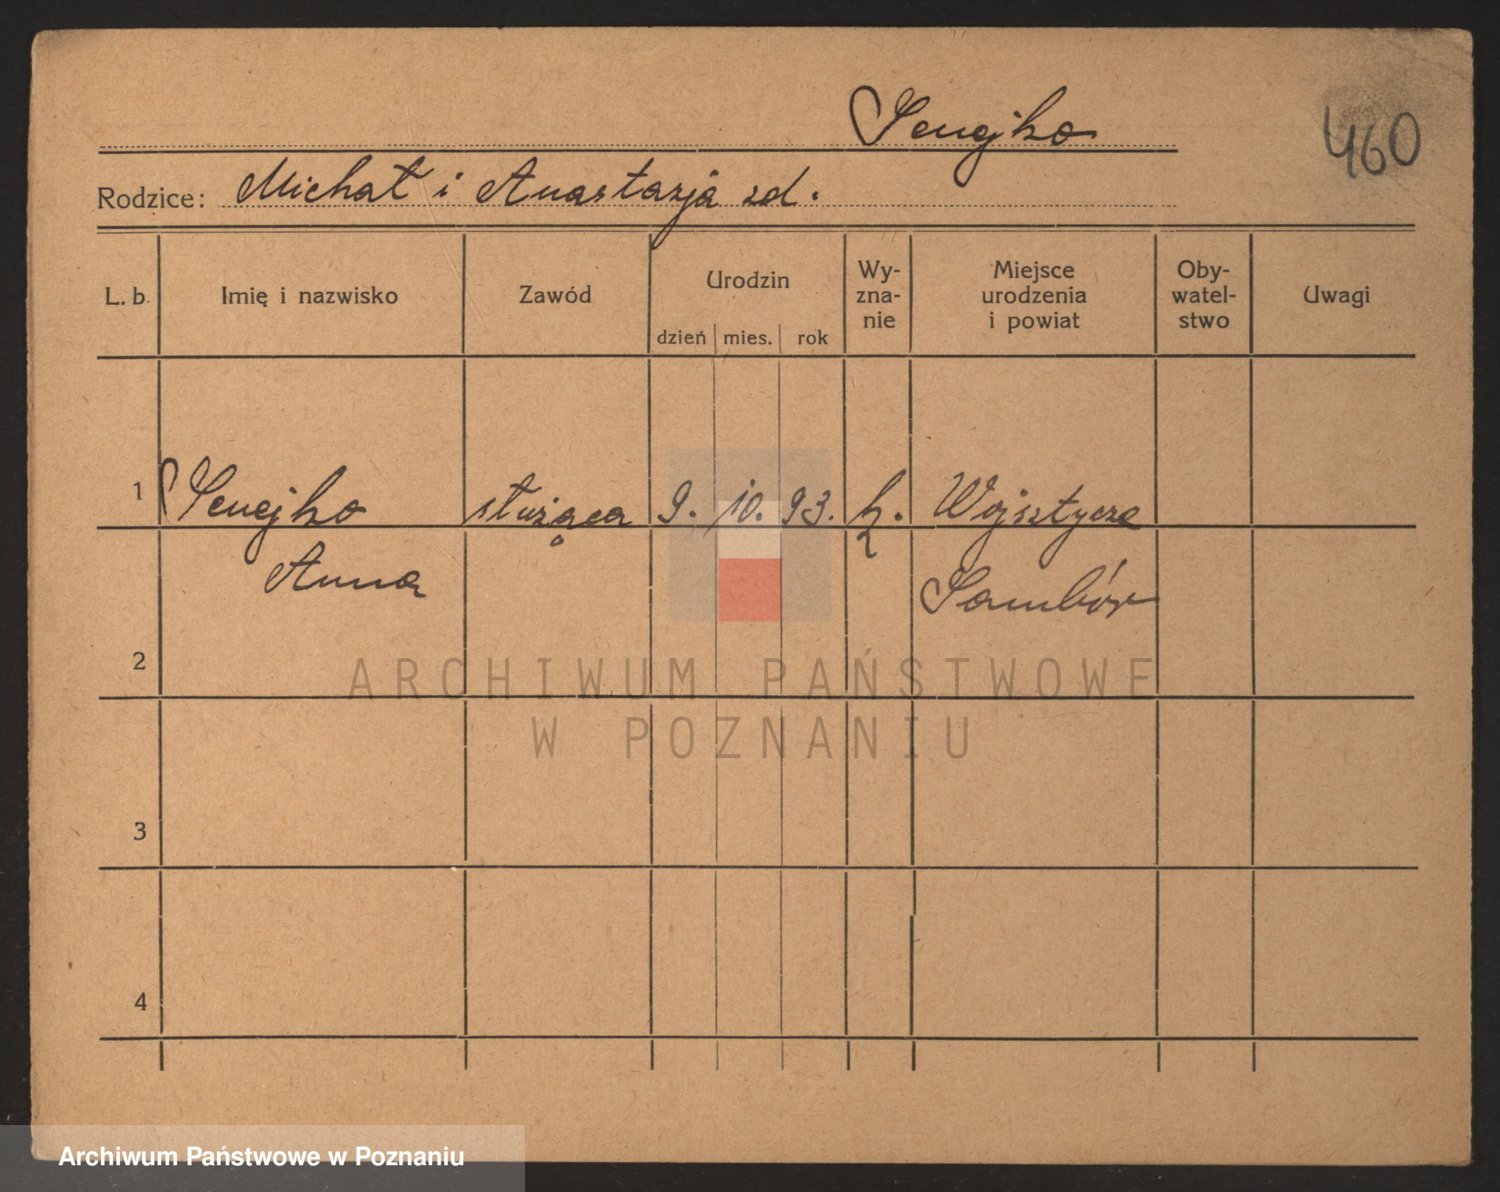 Senejko
460
Rodzice: Michał i Anastazja zd.
L. b. Imię i nazwisko Zawód Urodzin Wy- zna- nie Miejsce urodzenia i powiat Oby- watel- stwo Uwagi
dzień mies. rok
1 Senejko służąca 9. 10. 93. k. Wojsztycze
Anna Sambór
2
ARCHIWUM PAŃSTWOWE
W POZNANIU
3
4
Archiwum Państwowe w Poznaniu